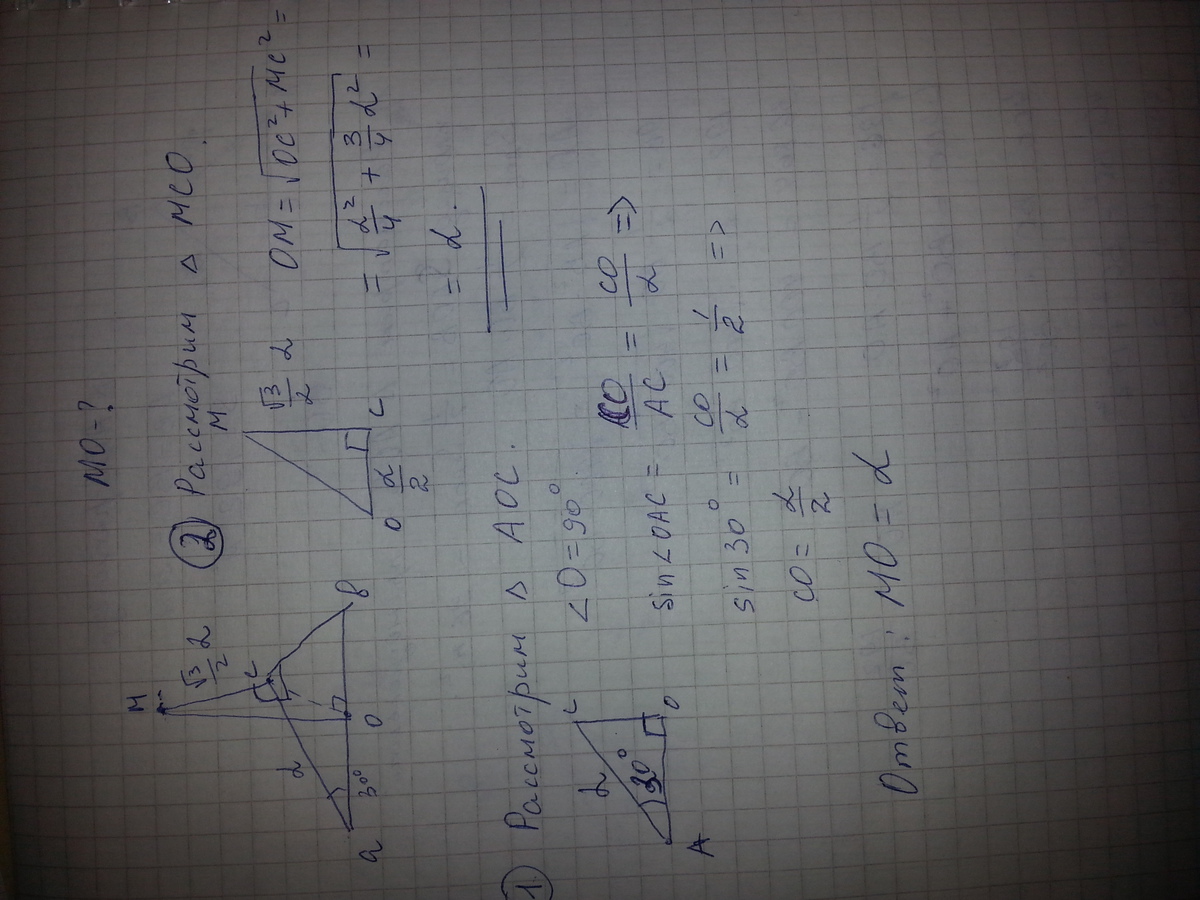 MO-?
M
√3/2 α
C
α
30°
a
O
B
① Рассмотрим △ AOC.
C
α
30°
A
O
<O=90°
sin<OAC = CO/AC = CO/α =>
sin30° = CO/α = 1/2 =>
CO = α/2
② Рассмотрим △ MCO.
M
√3/2 α
C
O
α/2
OM = √(OC²+MC²) =
= √(α²/4 + 3/4 α²) =
= α.
Ответ: MO = α